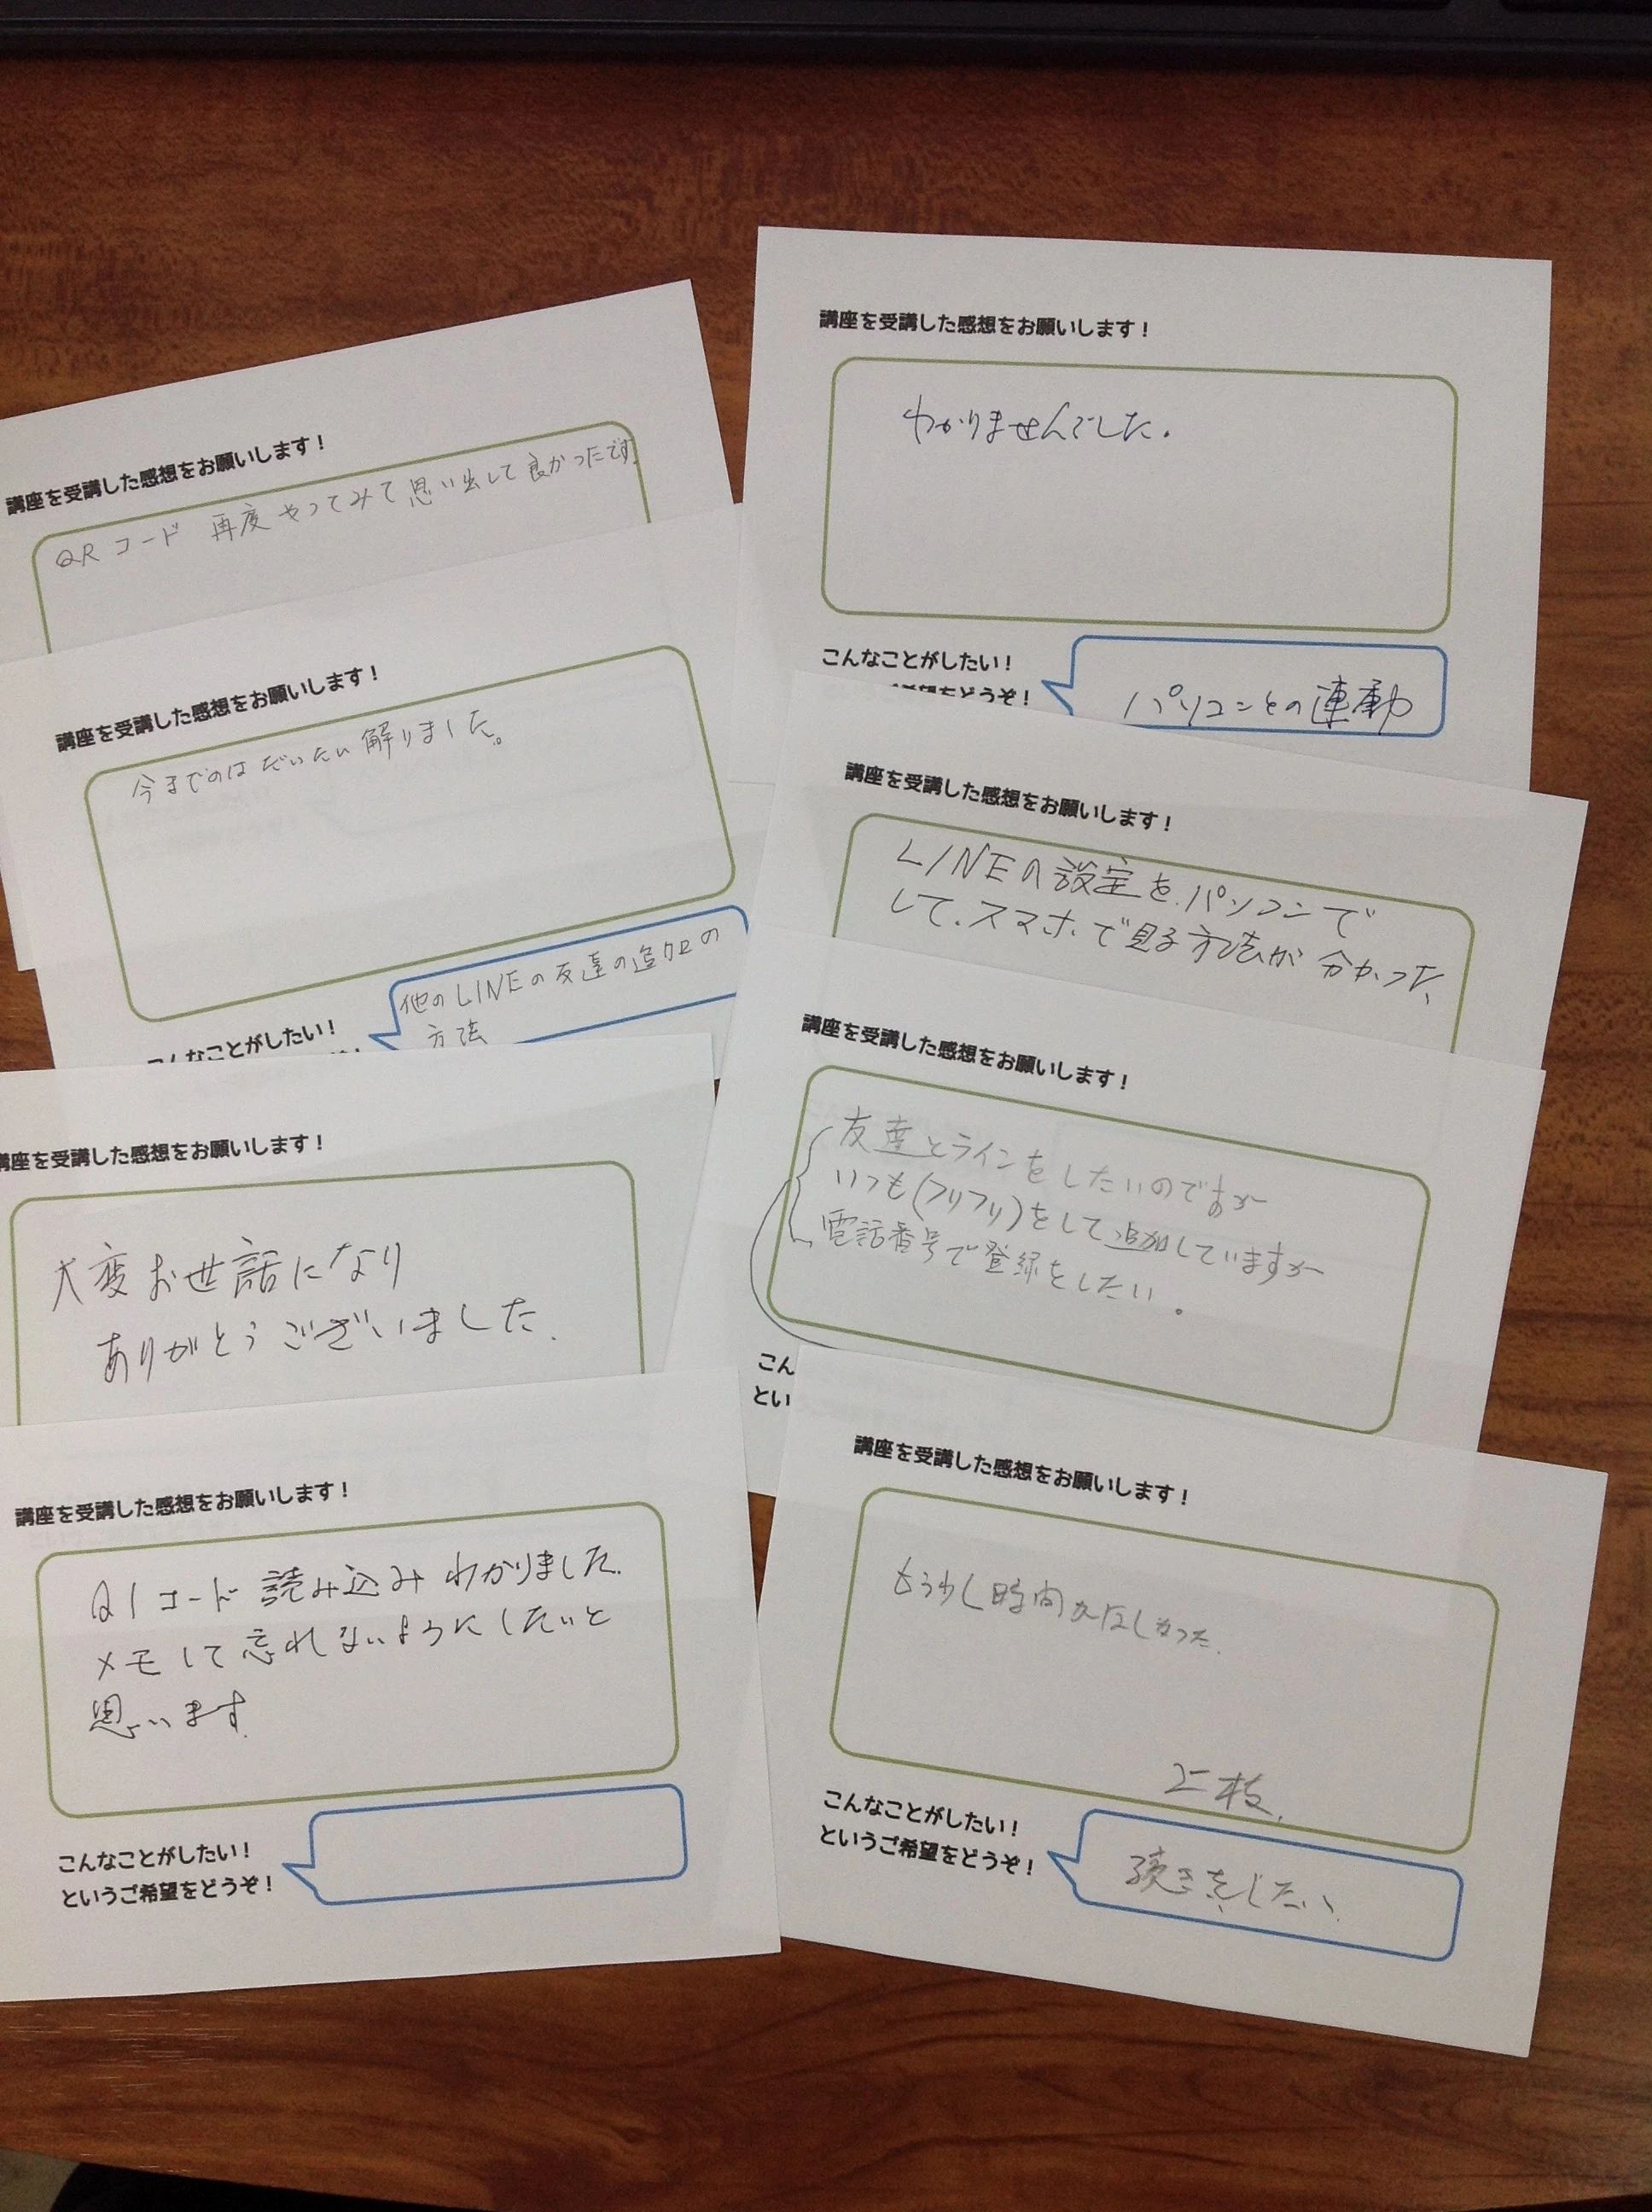 講座を受講した感想をお願いします！
QRコード 再度やってみて思い出して良かったです。
講座を受講した感想をお願いします！
今までのはだいたい解りました。
こんなことがしたい！
他のLINEの友達の追加の
方法
講座を受講した感想をお願いします！
大変お世話になり
ありがとうございました.
講座を受講した感想をお願いします！
QIコード 読み込みわかりました.
メモして忘れないようにしたいと
思います
こんなことがしたい！
というご希望をどうぞ！
講座を受講した感想をお願いします！
わかりませんでした.
こんなことがしたい！
希望をどうぞ！
パソコンとの連動
講座を受講した感想をお願いします！
LINEの設定を.パソコンで
して.スマホで見る方法が分かった、
講座を受講した感想をお願いします！
友達とラインをしたいのですが
いつも(フリフリ)をして追加していますが
電話番号で登録をしたい。
こん
とい
講座を受講した感想をお願いします！
もう少し時間がほしかった.
こんなことがしたい！
というご希望をどうぞ！
続きをしたい.